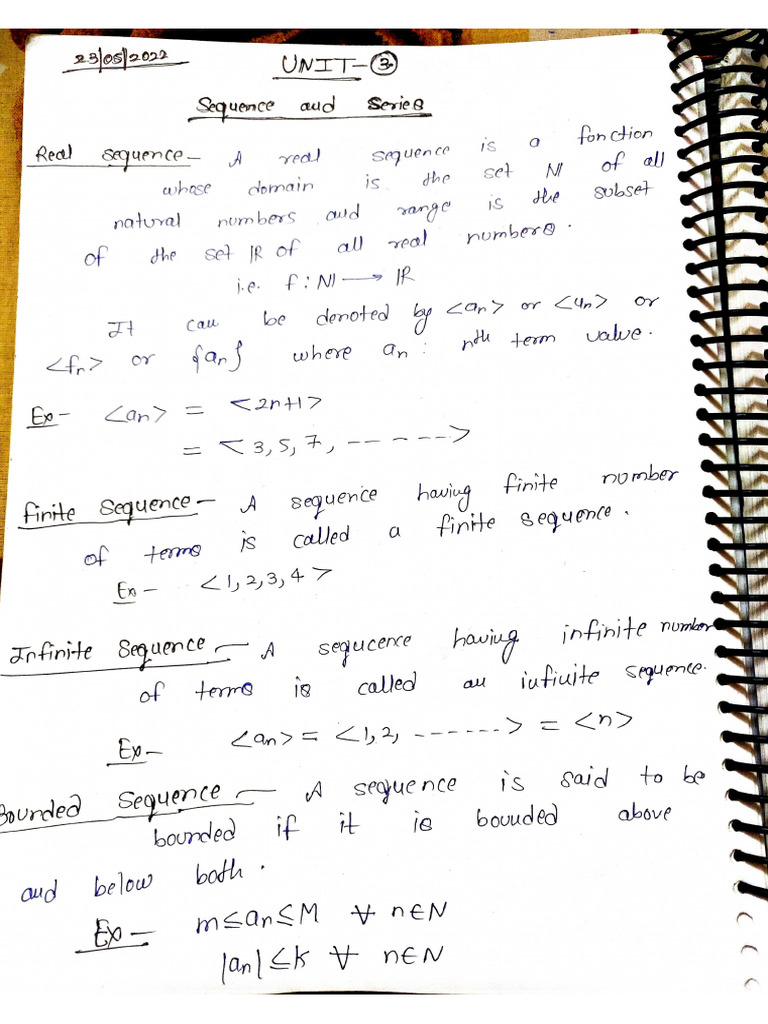 23/05/2022
UNIT-③
Sequence and Series
Real sequence - A real sequence is a fonction
whose domain is the set ℕ of all
natural numbers and range is the subset
of the set ℝ of all real numbers.
i.e. f : ℕ → ℝ
It can be denoted by <an> or <un> or
<fn> or {an} where an : nth term value.
Ex - <an> = <2n+1>
= <3, 5, 7, ------>
Finite Sequence - A sequence having finite number
of terms is called a finite sequence.
Ex - <1, 2, 3, 4>
Infinite Sequence - A sequcence having infinite number
of terms is called an infinite sequence.
Ex - <an> = <1, 2, -------> = <n>
Bounded Sequence - A sequence is said to be
bounded if it is bounded above
and below both.
Ex - m ≤ an ≤ M ∀ n∈N
|an| ≤ k ∀ n∈N